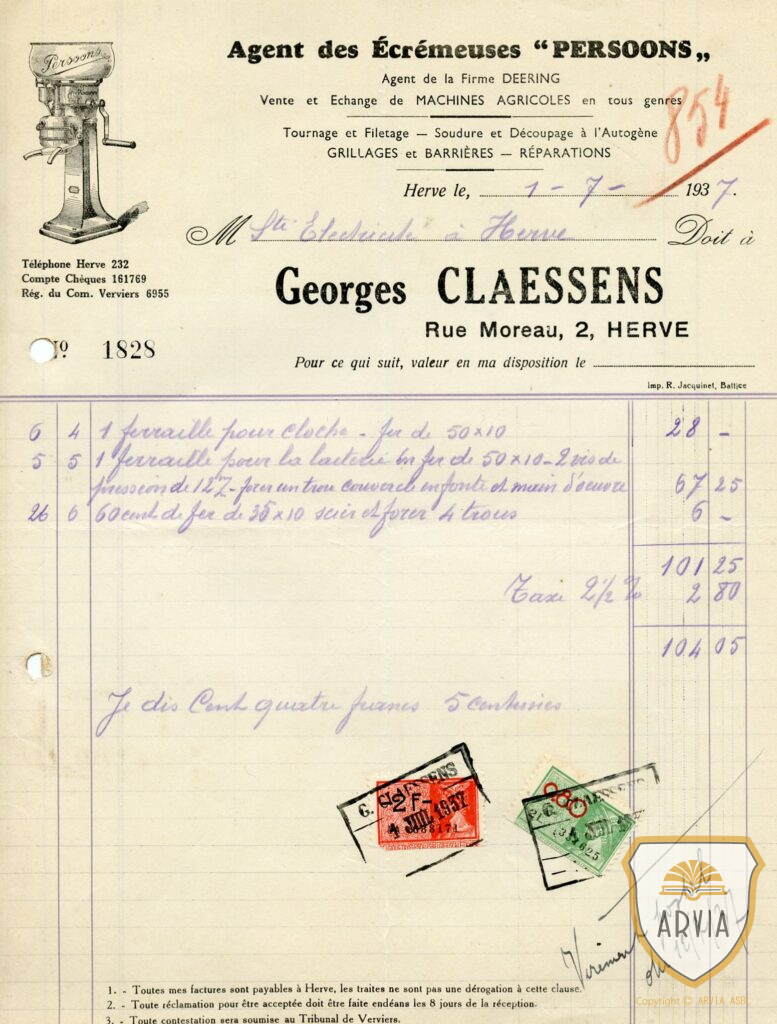 Persoons
Agent des Écrémeuses “PERSOONS„
Agent de la Firme DEERING
Vente et Echange de MACHINES AGRICOLES en tous genres
854
Tournage et Filetage — Soudure et Découpage à l'Autogène
GRILLAGES et BARRIÈRES — RÉPARATIONS
Herve le, 1 - 7 - 1937.
M Sté Electricité à Herve Doit à
Téléphone Herve 232
Compte Chèques 161769
Rég. du Com. Verviers 6955
Georges CLAESSENS
Rue Moreau, 2, HERVE
Nº 1828
Pour ce qui suit, valeur en ma disposition le
Imp. R. Jacquinet, Battice
6 4 1 ferraille pour cloche - fer de 50x10 28 -
5 5 1 ferraille pour la laiterie en fer de 50x10 - 2 vis de
pression de 12 - forer un trou couvercle en fonte et main d'oeuvre 67 25
26 6 60 cent de fer de 35x10 scier et forer 4 trous 6 -
101 25
Taxe 2 1/2 % 2 80
104 05
Je dis Cent quatre francs 5 centimes
G. CLAESSENS
2 F-
1 JUIL 1937
G. CLAESSENS
0.80
Virement
ARVIA
Copyright © ARVIA ASB
1. - Toutes mes factures sont payables à Herve, les traites ne sont pas une dérogation à cette clause.
2. - Toute réclamation pour être acceptée doit être faite endéans les 8 jours de la réception.
3. - Toute contestation sera soumise au Tribunal de Verviers.